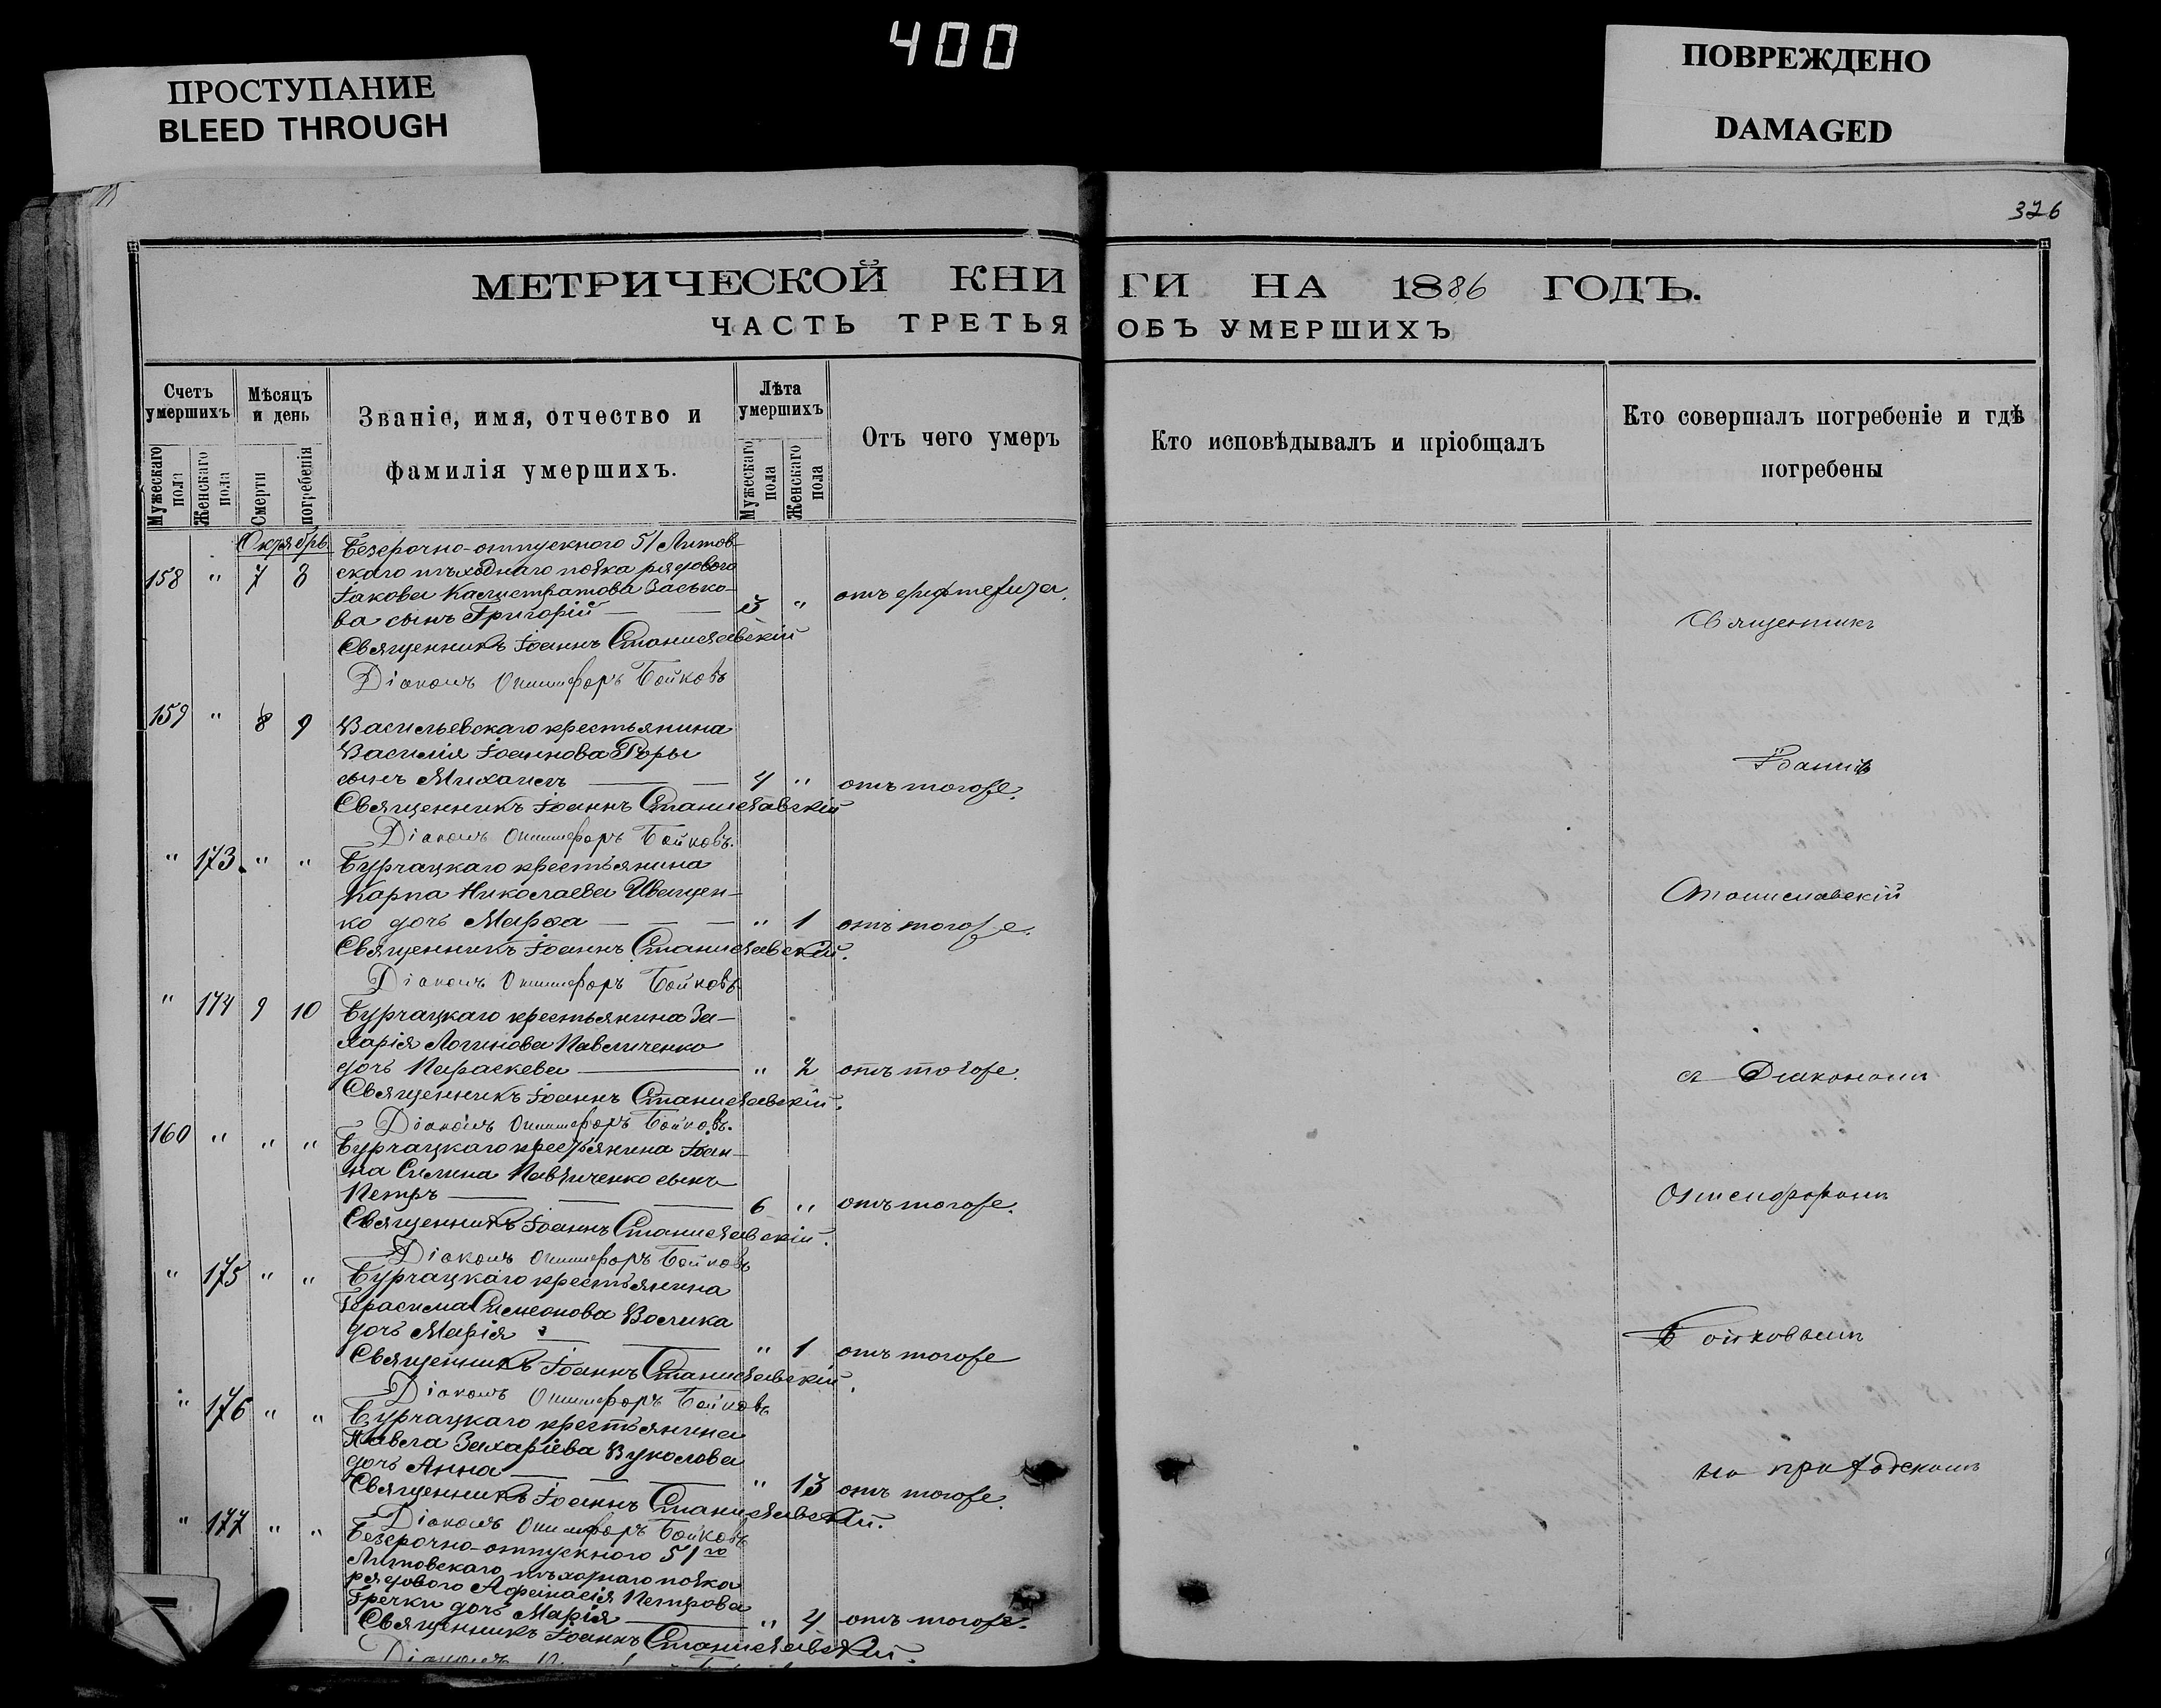 400
ПРОСТУПАНИЕ
BLEED THROUGH
ПОВРЕЖДЕНО
DAMAGED
326
МЕТРИЧЕСКОЙ КНИГИ НА 1886 ГОДЪ.
ЧАСТЬ ТРЕТЬЯ ОБЪ УМЕРШИХЪ
Счетъ умершихъ
Мужескаго пола
Женскаго пола
Мѣсяцъ и день
Смерти
погребенія
Званіе, имя, отчество и
фамилія умершихъ.
Лѣта умершихъ
Мужескаго пола
Женскаго пола
Отъ чего умеръ
Кто исповѣдывалъ и пріобщалъ
Кто совершалъ погребеніе и гдѣ
погребены
Октябрь
158 " 7 8
Безсрочно-отпускного 51 Литов-
скаго пѣхотнаго полка рядового
Іакова Калистратова Засько-
ва сынъ Григорій 3 " отъ дифтерита.
Священникъ Іоаннъ Станиславскій
Діаконъ Онисифоръ Бойковъ
159 " 8 9
Васильевскаго крестьянина
Василія Іоаннова Горы
сынъ Михаилъ 4 " отъ тогоже.
Священникъ Іоаннъ Станиславскій
Діаконъ Онисифоръ Бойковъ.
" 173 " "
Бурчацкаго крестьянина
Карпа Николаева Иващен-
ко дочь Марфа " 1 отъ тогоже.
Священникъ Іоаннъ Станиславскій.
Діаконъ Онисифоръ Бойковъ
" 174 9 10
Бурчацкаго крестьянина За-
харія Логинова Павличенко
дочь Параскева " 2 отъ тогоже.
Священникъ Іоаннъ Станиславскій.
Діаконъ Онисифоръ Бойковъ.
160 " " "
Бурчацкаго крестьянина Іоан-
на Силина Павличенко сынъ
Петръ 6 " отъ тогоже.
Священникъ Іоаннъ Станиславскій.
Діаконъ Онисифоръ Бойковъ
" 175 " "
Бурчацкаго крестьянина
Герасима Симеонова Волика
дочь Марія " 1 отъ тогоже
Священникъ Іоаннъ Станиславскій.
Діаконъ Онисифоръ Бойковъ
" 176 " "
Бурчацкаго крестьянина
Павла Захаріева Вуколова
дочь Анна " 13 отъ тогоже.
Священникъ Іоаннъ Станиславскій.
Діаконъ Онисифоръ Бойковъ
" 177 " "
Безсрочно-отпускного 51го
Литовскаго пѣхотнаго полка
рядового Афанасія Петрова
Гречки дочь Марія " 4 отъ тогоже.
Священникъ Іоаннъ Станиславскій.
Діаконъ
Священникъ
Іоаннъ
Станиславскій
съ Діакономъ
Онисифоромъ
Бойковымъ
на приходскомъ